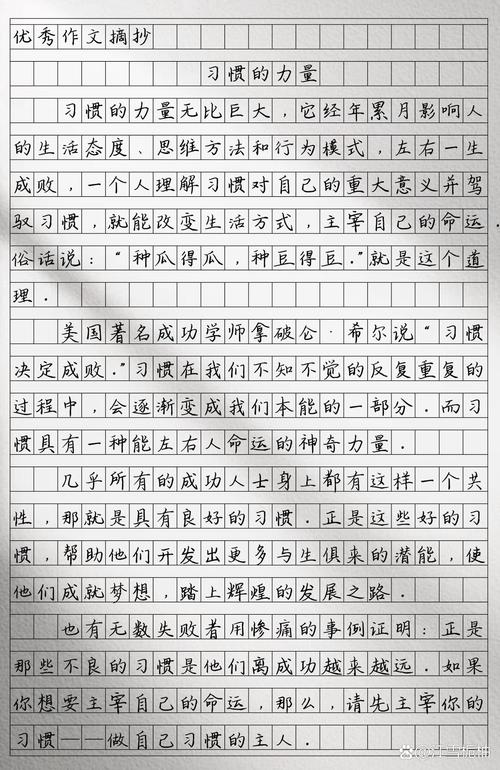 优秀作文摘抄
习惯的力量
习惯的力量无比巨大,它经年累月影响人
的生活态度、思维方法和行为模式,左右一生
成败,一个人理解习惯对自己的重大意义并驾
驭习惯,就能改变生活方式,主宰自己的命运.
俗话说:“种瓜得瓜,种豆得豆.”就是这个道
理.
美国著名成功学师拿破仑·希尔说“习惯
决定成败.”习惯在我们不知不觉的反复重复的
过程中,会逐渐变成我们本能的一部分.而习
惯具有一种能左右人命运的神奇力量.
几乎所有的成功人士身上都有这样一个共
性,那就是具有良好的习惯.正是这些好的习
惯,帮助他们开发出更多与生俱来的潜能,使
他们成就梦想,踏上辉煌的发展之路.
也有无数失败者用惨痛的事例证明:正是
那些不良的习惯是他们离成功越来越远.如果
你想要主宰自己的命运,那么,请先主宰你的
习惯——做自己习惯的主人.